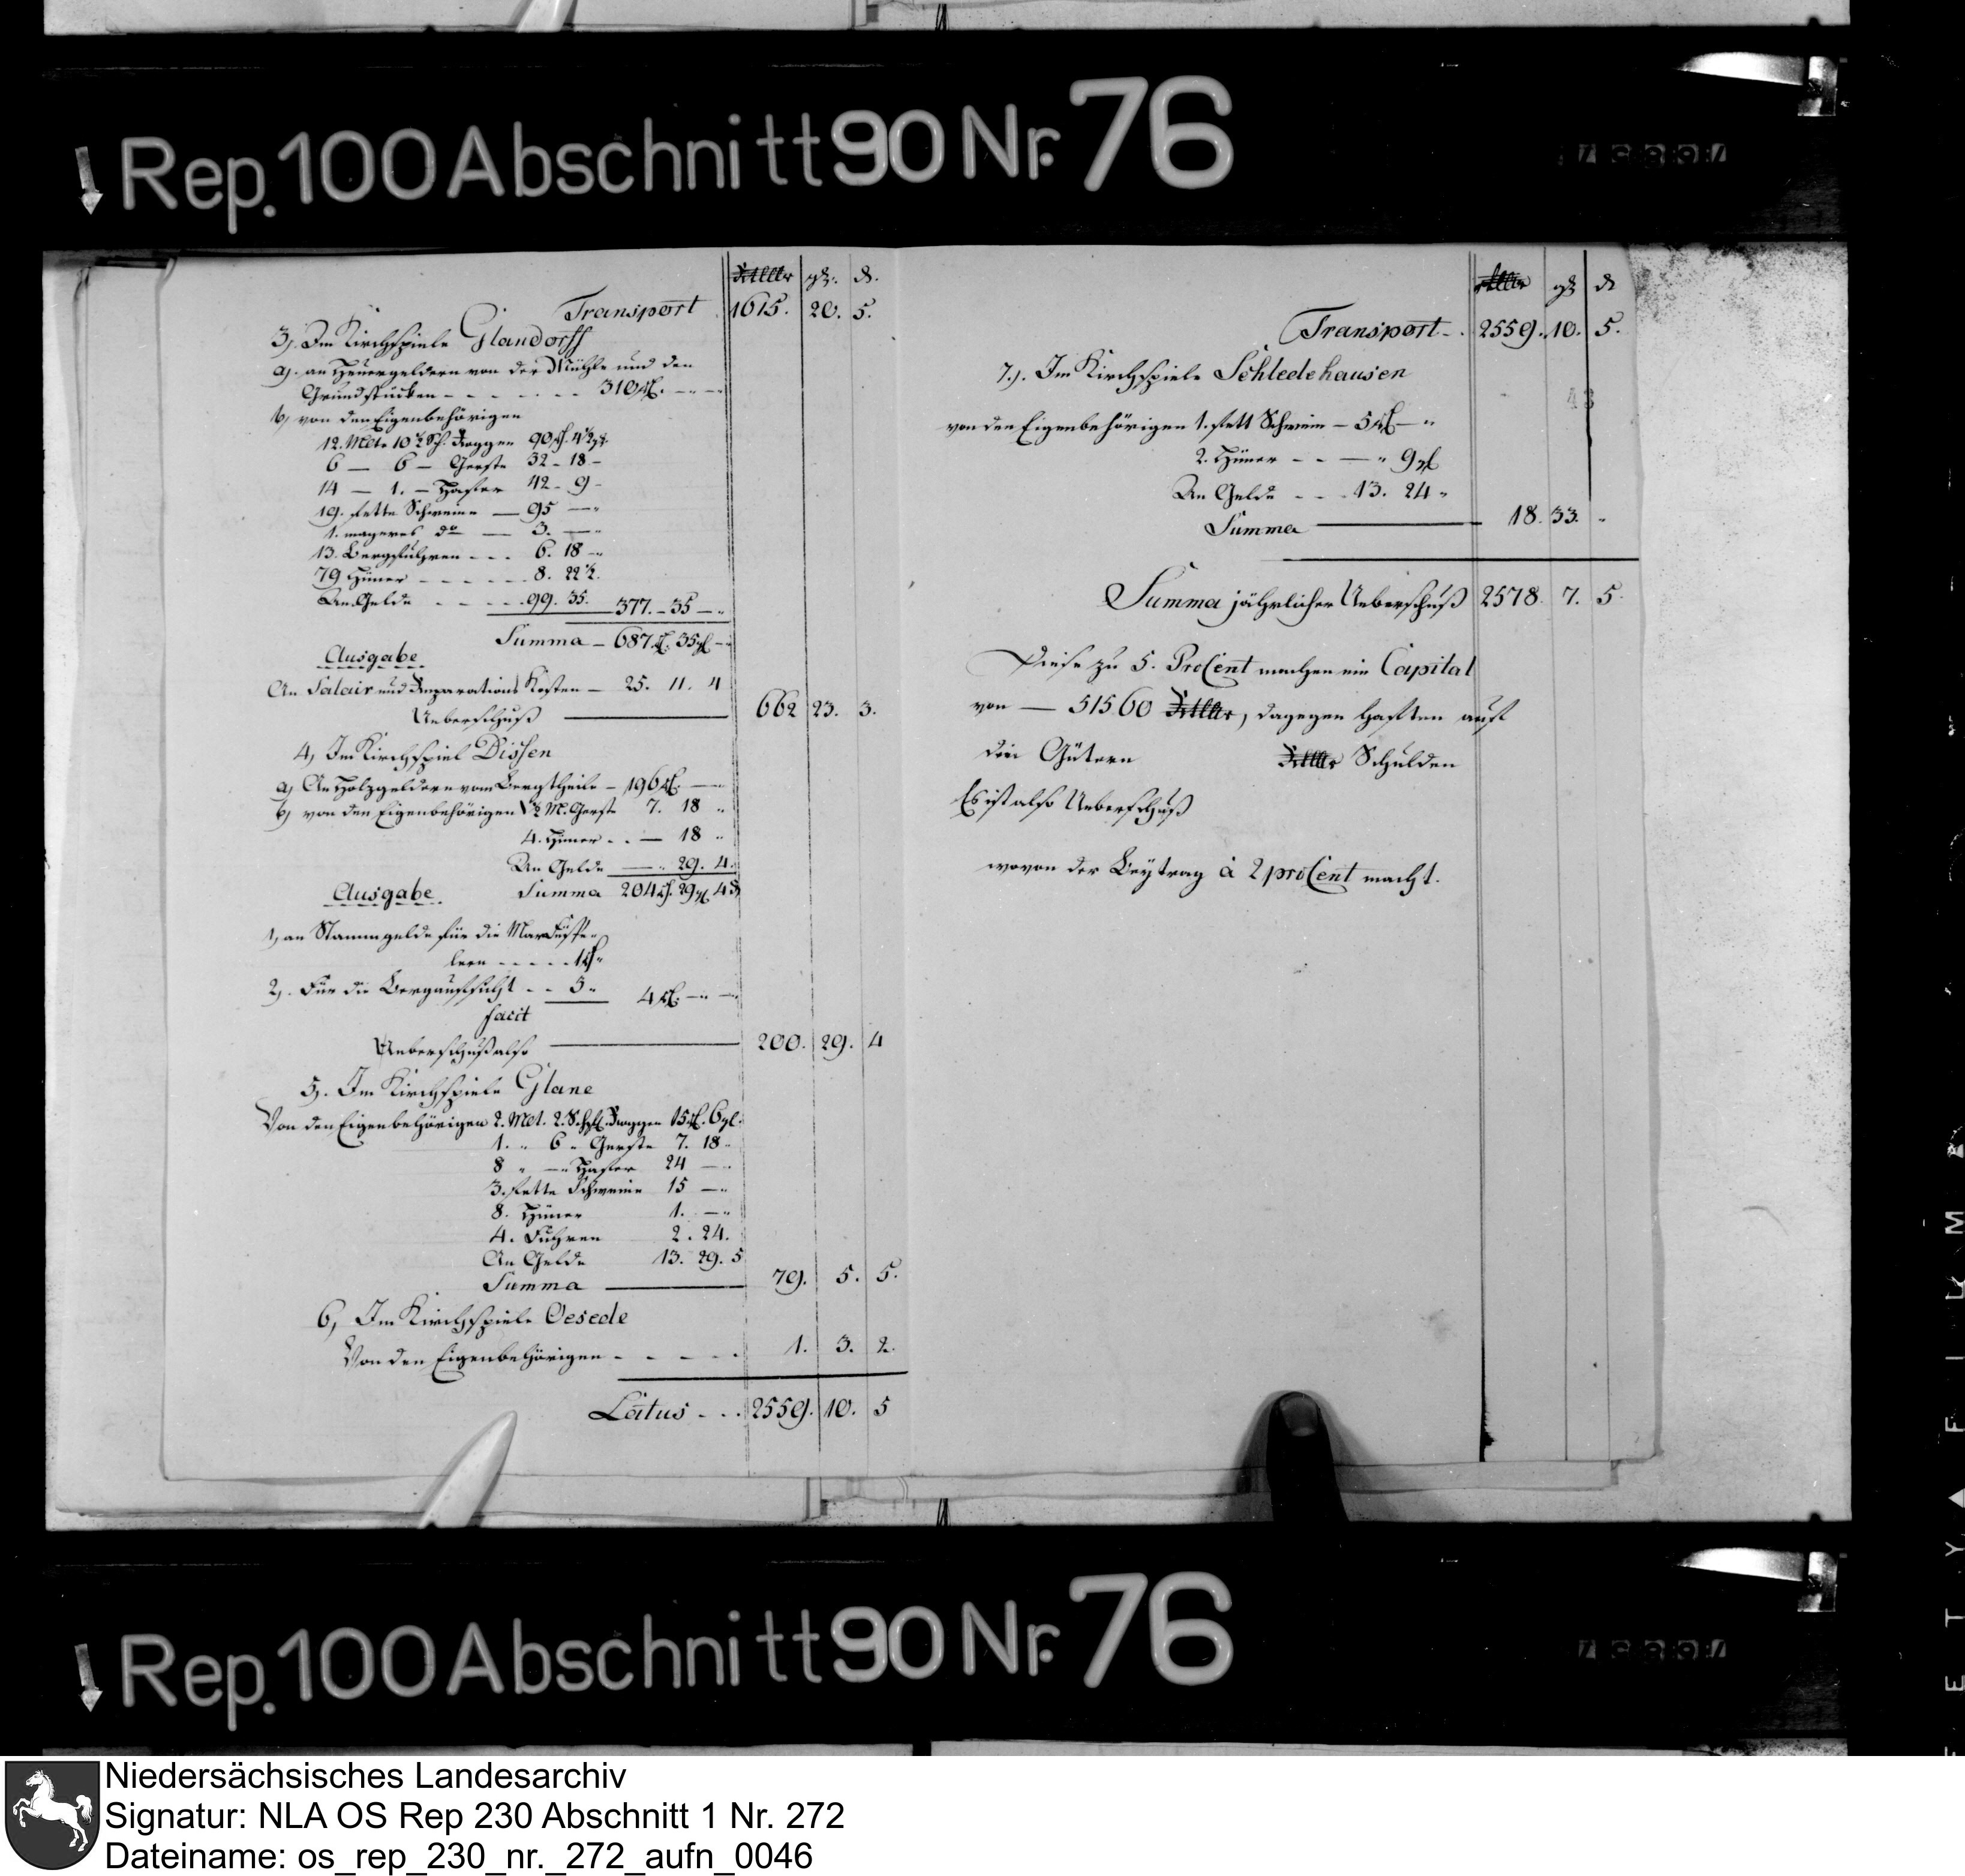 Rep. 100 Abschnitt 90 Nr. 76
Rthlr gr. d.
Transport 1615. 20. 5.
3, Im Kirchspiele Glandorff
a). an Heuergeldern von der Mühle und den
Grundstücken - - - - - - 310 rl. - -
b, von den Eigenbehörigen
12. Mlt. 10½ Sch. Roggen 90 rl. 4½ gr.
6 — 6 — Gerste 32 - 18 -
14 — 1. — Hafer 42 - 9 -
19. fette Schweine — 95 — "
1. mageres do — 3. — "
13. Bergfuhren - - - 6. 18 - "
79 Hüner - - - - - - 8. 22½.
An Gelde - - - - 99. 35. 377. - 35 - "
Summa - 687 rl. 35 gl -
Ausgabe
An Salair und Reparations Kosten — 25. 11. 4
Ueberschuß — 662 23. 3.
4, Im Kirchspiel Dissen
a) An Holzgeldern vom Bergtheile - 196 rl. —
b) von den Eigenbehörigen 1½ M. Gerste 7. 18 "
4. Hüner - - — 18 "
An Gelde — " 29. 4.
Ausgabe. Summa 204 rl. 29 gl. 4 d
1, an Stammgelde für die
lern - - - - - 1 rl "
2). Für die Bergaufsicht - - 3 "
4 rl. — " —
facit
Ueberschuß also — 200. 29. 4
5. Im Kirchspiele Glane
Von den Eigenbehörigen 2. Mlt. 2. Schfl. Roggen 15 rl. 6 gl.
1. " 6 " Gerste 7. 18 "
8 " — " Hafer 24 — "
3. fette Schweine 15 — "
8. Hüner 1. — "
4. Fuhren 2. 24.
An Gelde 13. 29. 5
Summa — 79. 5. 5.
6, Im Kirchspiele Oesede
Von den Eigenbehörigen - - - - - 1. 3. 2.
Latus - - - 2559. 10. 5
Rthlr gr d
Transport - . 2559. 10. 5.
7.). Im Kirchspiele Schledehausen
43
von den Eigenbehörigen 1. fett Schwein — 5 rl — "
2. Hüner - - — " 9 gl
An Gelde - - . 13. 24 "
Summa — 18. 33. "
Summa jährlicher Ueberschuß 2578. 7. 5.
Diese zu 5. ProCent machen ein Capital
von — 51560 Rthlr, dagegen haften auf
den Gütern Rthlr Schulden
Es ist also Ueberschuß
wovon der Beytrag à 2 proCent macht.
Rep. 100 Abschnitt 90 Nr. 76
Niedersächsisches Landesarchiv
Signatur: NLA OS Rep 230 Abschnitt 1 Nr. 272
Dateiname: os_rep_230_nr._272_aufn_0046